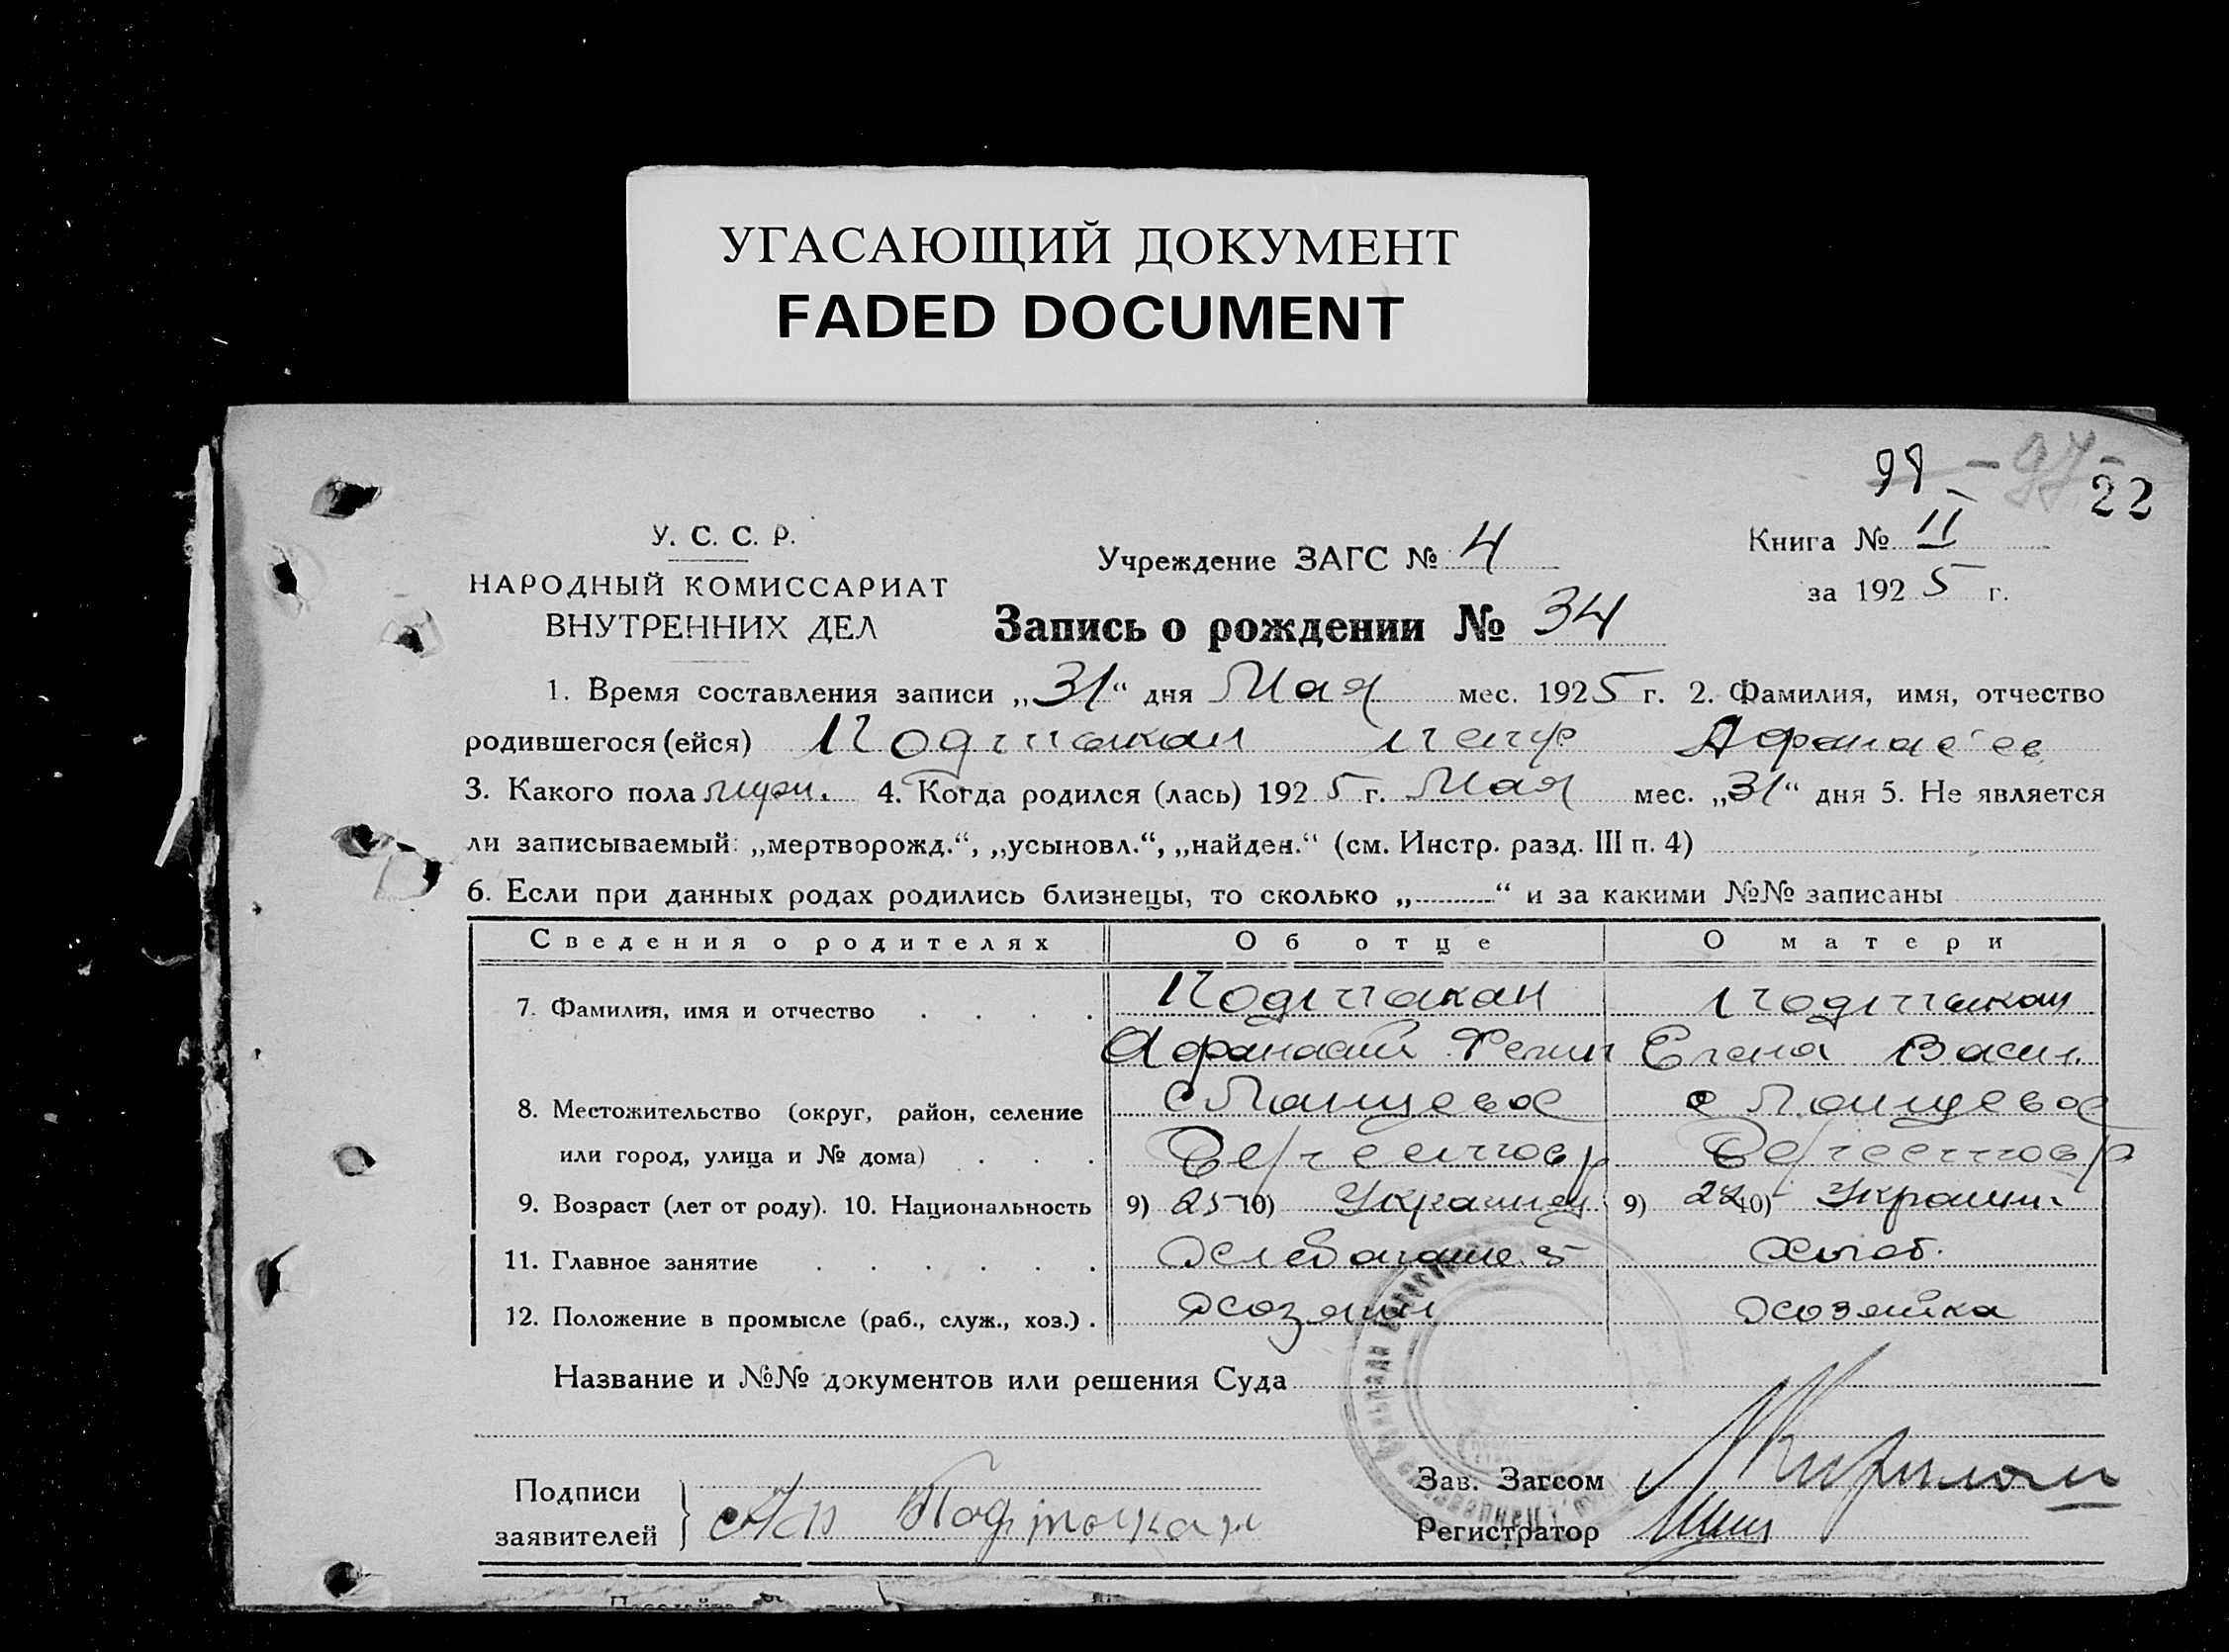 УГАСАЮЩИЙ ДОКУМЕНТ
FADED DOCUMENT
98 - 97 -
22
У. С. С. Р.
НАРОДНЫЙ КОМИССАРИАТ
ВНУТРЕННИХ ДЕЛ
Учреждение ЗАГС № 4
Книга № II
за 1925 г.
Запись о рождении № 34
1. Время составления записи „31“ дня Мая мес. 1925 г. 2. Фамилия, имя, отчество
родившегося (ейся) Подтакан Петр Афанас'ев
3. Какого пола муж. 4. Когда родился (лась) 1925 г. Мая мес. „31“ дня 5. Не является
ли записываемый: „мертворожд.“, „усыновл.“, „найден.“ (см. Инстр. разд. III п. 4)
6. Если при данных родах родились близнецы, то сколько „ “ и за какими №№ записаны
Сведения о родителях Об отце О матери
7. Фамилия, имя и отчество Подтакан Подтакан
Афанасий Елена Васил.
8. Местожительство (округ, район, селение с с
или город, улица и № дома)
9. Возраст (лет от роду). 10. Национальность 9) 25 10) Украинец 9) 10) Украин
11. Главное занятие
12. Положение в промысле (раб., служ., хоз.) хозяин хозяйка
Название и №№ документов или решения Суда
Подписи
заявителей Подтакан
Зав. Загсом
Регистратор